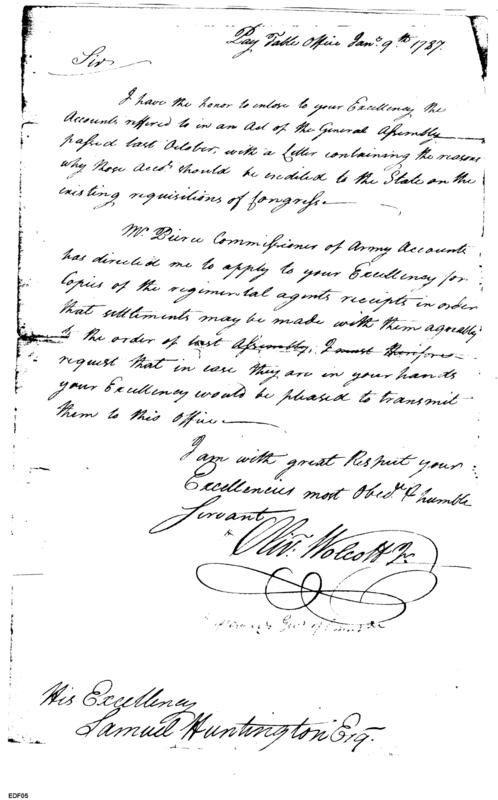 Pay Table Office Jany. 9th 1787.
Sir
I have the honor to inclose to your Excellency the
Accounts reffered to in an Act of the General Assembly
passed last October, with a Letter containing the reasons
why those Accots. should be credited to the State on the
existing requisitions of Congress
Mr. Pierce Commissioner of Army Accounts
has directed me to apply to your Excellency for
Copies of the regimental agents receipts in order
that settlements may be made with them agreeably
to the order of last Assembly, I must therefore
request that in case they are in your hands
your Excellency would be pleased to transmit
them to this Office
I am with great Respect your
Excellencies most Obedt. & humble
Servant
Olivr. Wolcott Jr.
His Excellency
Samuel Huntington Esq.
EDF05